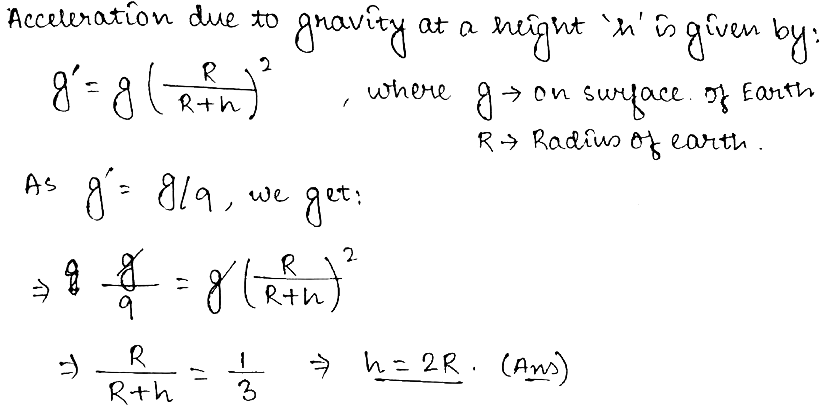 Acceleration due to gravity at a height 'h' is given by:
g' = g (R/(R+h))² , where g → on surface of Earth
R → Radius of earth.
As g' = g/9, we get:
⇒ g/9 = g (R/(R+h))²
⇒ R/(R+h) = 1/3 ⇒ h = 2R. (Ans)